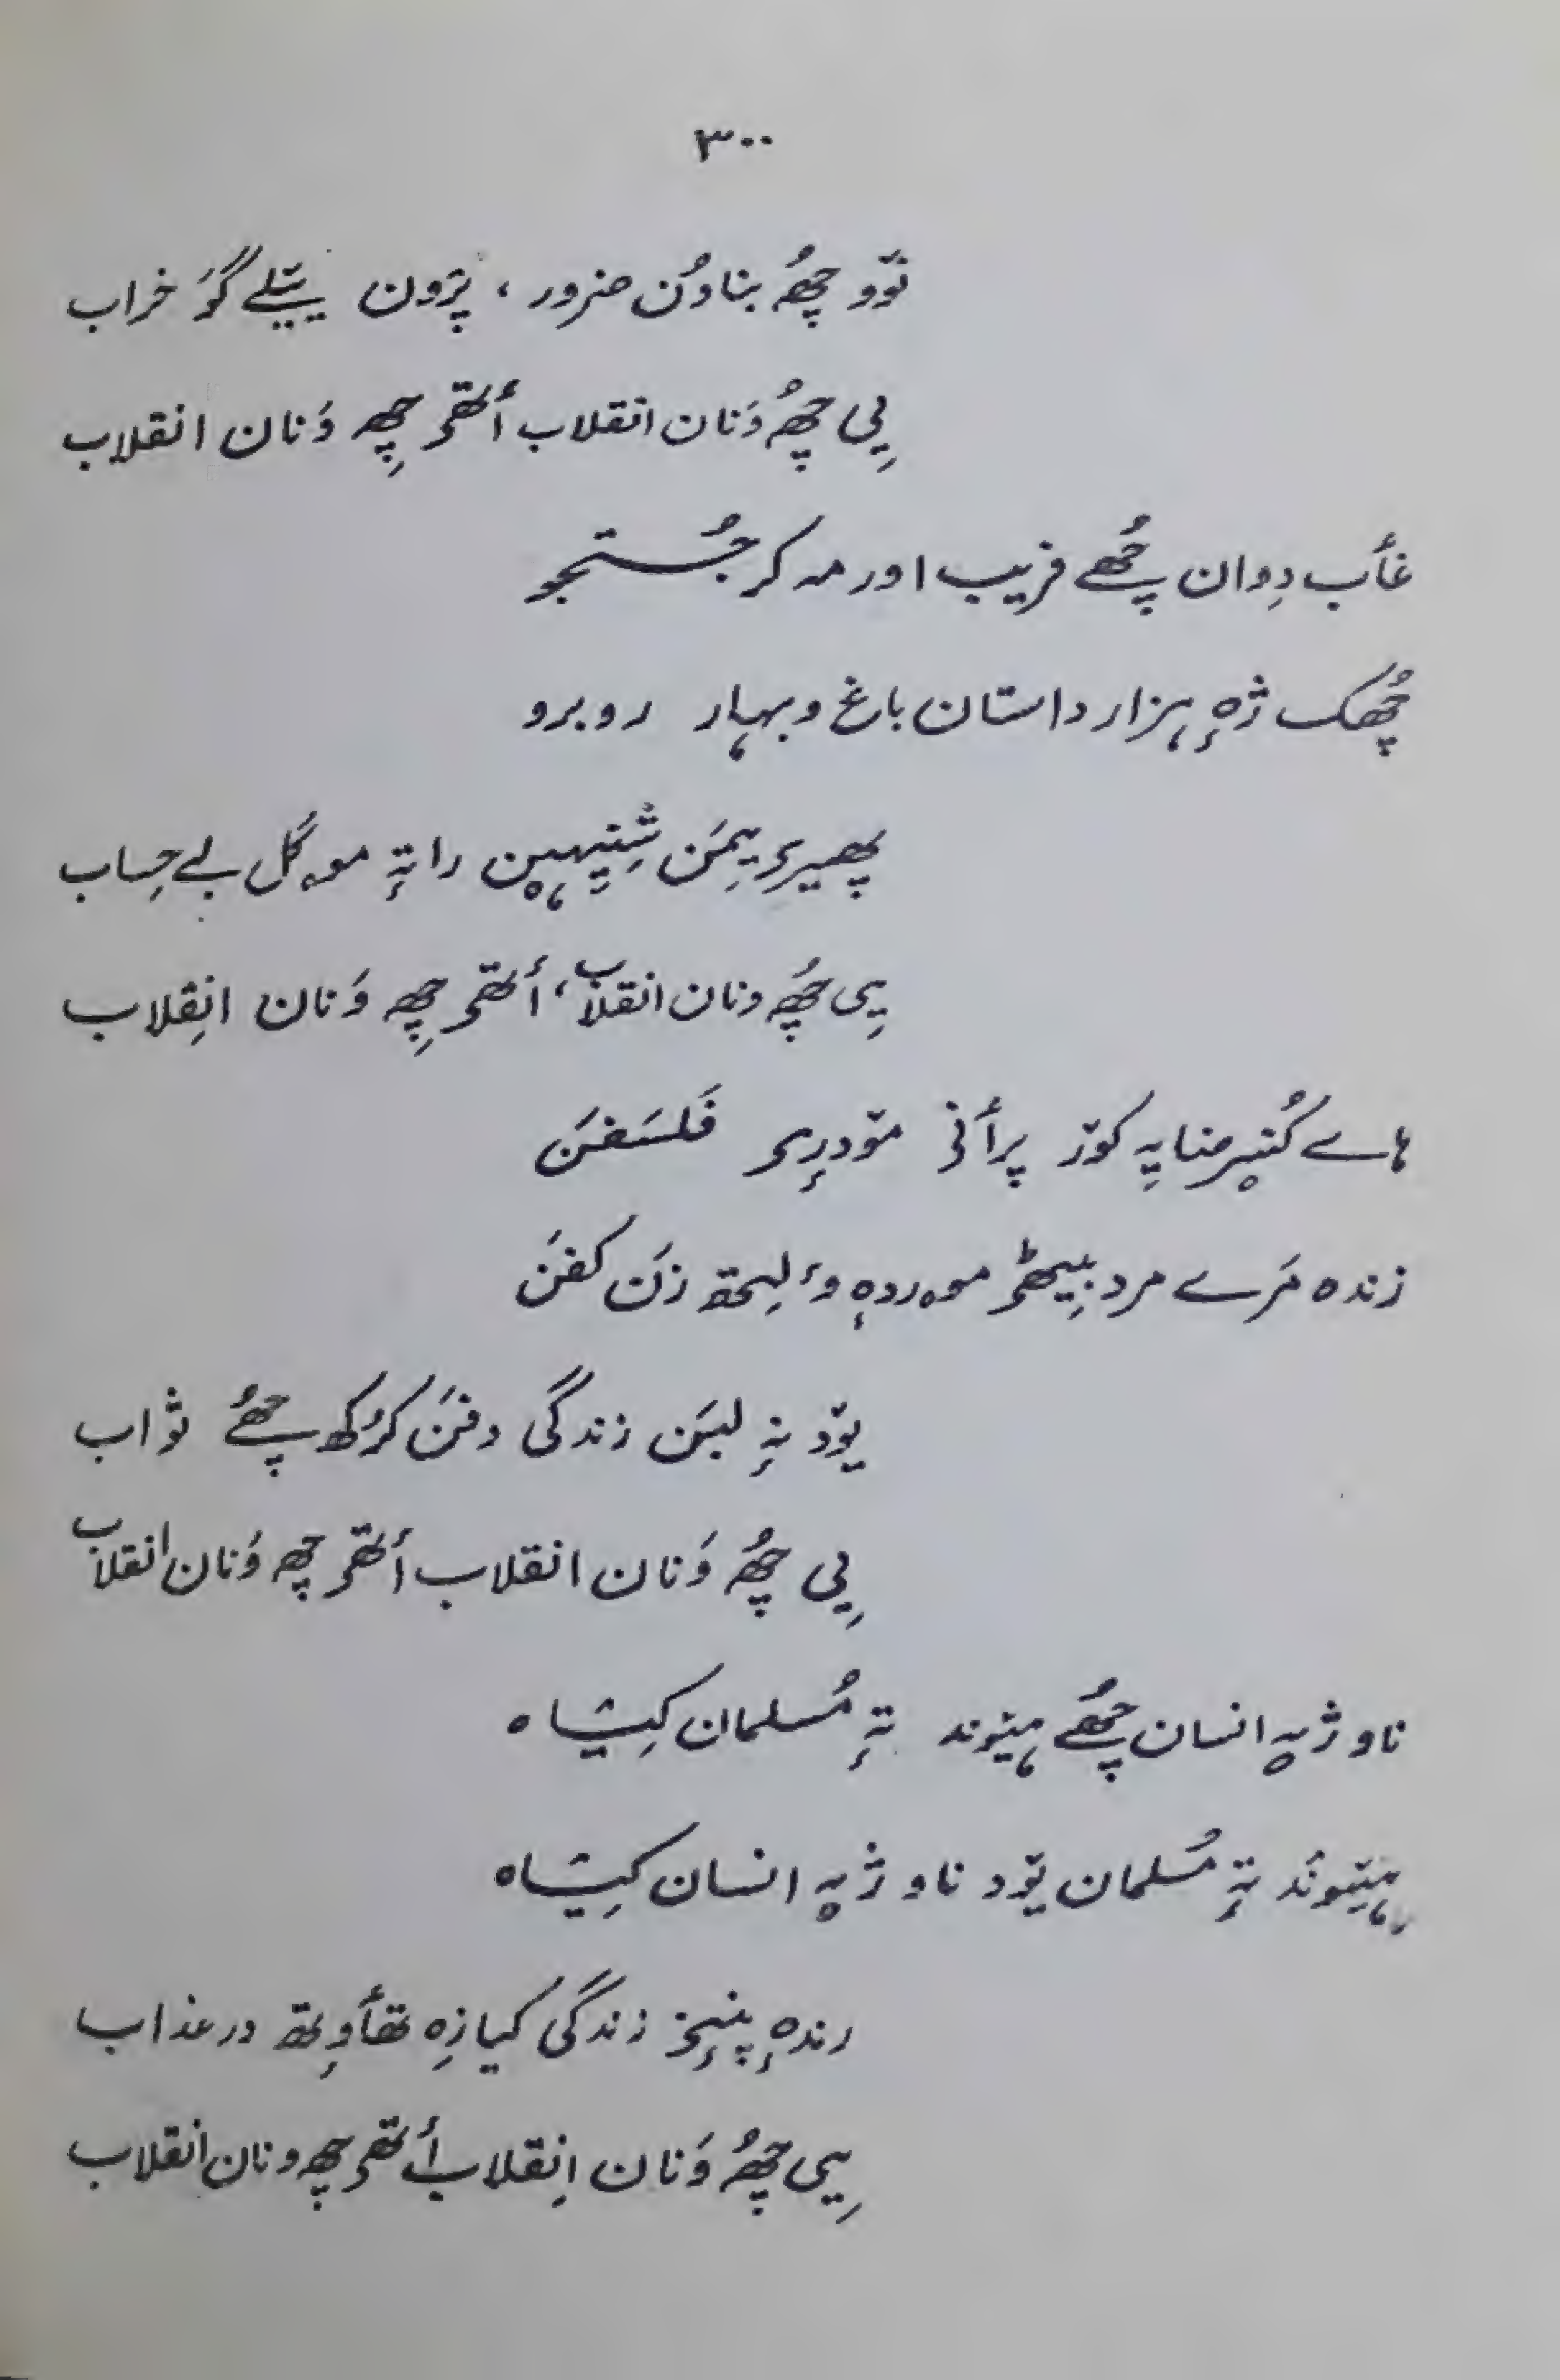 ۳۰۰
نٔوو چھُ بناوُن ضرور، پرٛون ییٚتیلے گوٚو خراب
یِی چھُ وَنان انقلاب أتھۍ چھِ وَنان انقلاب
غٲب دِوان چھُے فریب اور مہ کر جُستجو
چھُک ژٕہ ہزار داستان باغ و بہار روبرو
پھیرۍ یِمَن راتہٕ موہ گُل بے حِساب
یِی چھُ ونان انقلاب، أتھۍ چھِ وَنان اِنقلاب
ہاے پرٲنۍ موٚدرِۍ فَلسَفَن
زندہ مَرے مرد بِیٹھۍ موردہٕ ولِتھ زَن کفَن
یوٚد نہٕ لبَن زندگی دفَن کرُکھ چھُے ثواب
یِی چھُ وَنان انقلاب أتھۍ چھِ وَنان انقلاب
ناو ژیہٕ انسان چھُے ہیٚوند تہٕ مُسلمان کیٛشاہ
ہیٚوند تہٕ مُسلمان یوٚد ناو ژیہٕ انسان کیٛشاہ
رندہٕ پنٕنۍ زندگی کیازِہ تھٲوِتھ در عذاب
یِی چھُ وَنان اِنقلاب أتھۍ چھِ ونان انقلاب